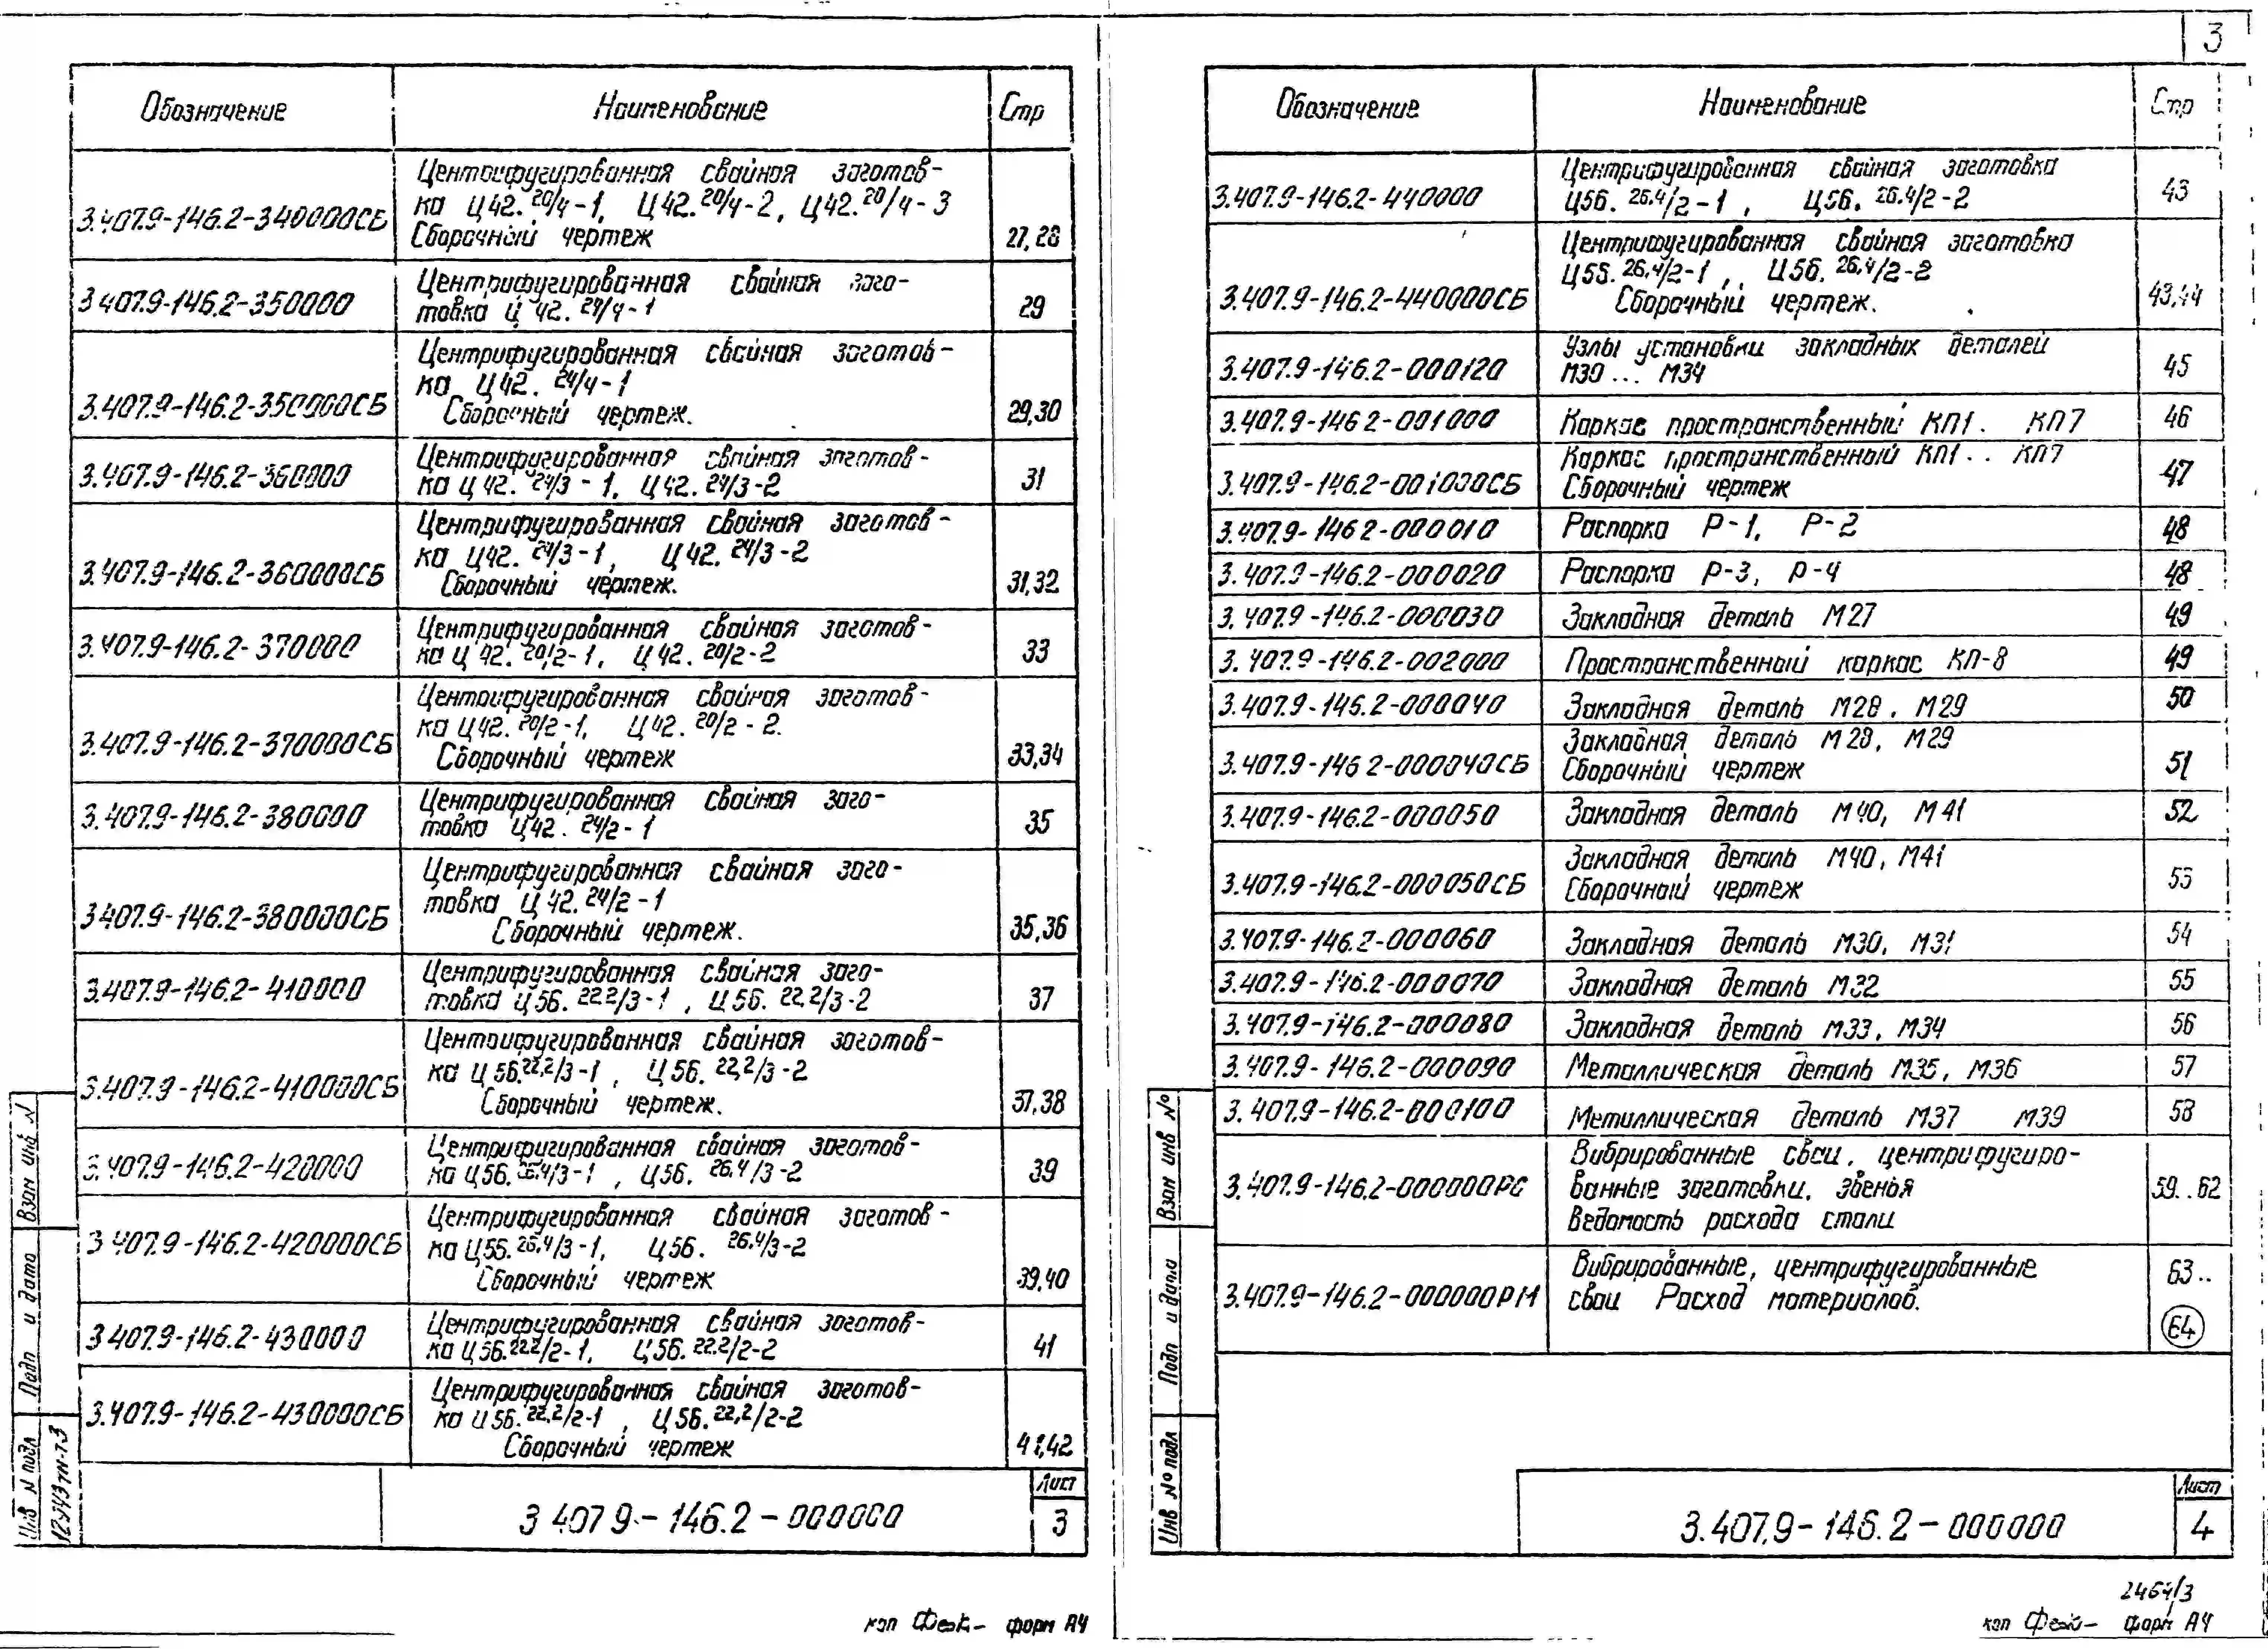 3
Обозначение Наименование Стр
Центрифугированная свайная заготов-
3.407.9-146.2-340000СБ ка Ц42.20/4-1, Ц42.20/4-2, Ц42.20/4-3
Сборочный чертеж 27,28
Центрифугированная свайная заго-
3 407.9-146.2-350000 товка Ц 42. 24/4-1 29
Центрифугированная свайная заготов-
ка Ц42. 24/4-1
3.407.9-146.2-350000СБ Сборочный чертеж. 29,30
Центрифугированная свайная заготов-
3.407.9-146.2-360000 ка Ц 42. 24/3-1, Ц42. 24/3-2 31
Центрифугированная свайная заготов-
ка Ц42. 24/3-1, Ц42. 24/3-2
3.407.9-146.2-360000СБ Сборочный чертеж. 31,32
Центрифугированная свайная заготов-
3.407.9-146.2-370000 ка Ц 42. 20/2-1, Ц 42. 20/2-2 33
Центрифугированная свайная заготов-
ка Ц42. 20/2-1, Ц42. 20/2-2.
3.407.9-146.2-370000СБ Сборочный чертеж 33,34
Центрифугированная свайная заго-
3.407.9-146.2-380000 товка Ц42. 24/2-1 35
Центрифугированная свайная заго-
товка Ц 42. 24/2-1
3.407.9-146.2-380000СБ Сборочный чертеж. 35,36
Центрифугированная свайная заго-
3.407.9-146.2-410000 товка Ц56. 22.2/3-1, Ц56. 22.2/3-2 37
Центрифугированная свайная заготов-
3.407.9-146.2-410000СБ ка Ц 56.22,2/3-1, Ц 56. 22,2/3-2
Сборочный чертеж. 37,38
Центрифугированная свайная заготов-
3.407.9-146.2-420000 ка Ц56.26.4/3-1, Ц56. 26.4/3-2 39
Центрифугированная свайная заготов-
3 407.9-146.2-420000СБ ка Ц56.26.4/3-1, Ц56. 26.4/3-2
Сборочный чертеж 39,40
Центрифугированная свайная заготов-
3 407.9-146.2-430000 ка Ц56.22.2/2-1, Ц56. 22.2/2-2 41
Центрифугированная свайная заготов-
3.407.9-146.2-430000СБ ка Ц56.22.2/2-1, Ц56.22,2/2-2
Сборочный чертеж 41,42
Взам инв N
Подп и дата
Инв N подл
12443тм-т3
3 407 9-146.2-000000
Лист
3
кап форм А4
Обозначение Наименование Стр
Центрифугированная свайная заготовка
3.407.9-146.2-440000 Ц56. 26.4/2-1, Ц56. 26.4/2-2 43
Центрифугированная свайная заготовка
Ц56.26.4/2-1, Ц56. 26.4/2-2
3.407.9-146.2-440000СБ Сборочный чертеж. 43,44
Узлы установки закладных деталей
3.407.9-146.2-000120 М30... М34 45
3.407.9-146 2-001000 Каркас пространственный КП1. КП7 46
Каркас пространственный КП1.. КП7
3.407.9-146.2-001000СБ Сборочный чертеж 47
3.407.9-146 2-000010 Распорка Р-1, Р-2 48
3.407.9-146.2-000020 Распорка Р-3, Р-4 48
3.407.9-146.2-000030 Закладная деталь М27 49
3.407.9-146.2-002000 Пространственный каркас КП-8 49
3.407.9-146.2-000040 Закладная деталь М28, М29 50
Закладная деталь М28, М29
3.407.9-146 2-000040СБ Сборочный чертеж 51
3.407.9-146.2-000050 Закладная деталь М40, М41 52
Закладная деталь М40, М41
3.407.9-146.2-000050СБ Сборочный чертеж 53
3.407.9-146.2-000060 Закладная деталь М30, М31 54
3.407.9-146.2-000070 Закладная деталь М32 55
3.407.9-146.2-000080 Закладная деталь М33, М34 56
3.407.9-146.2-000090 Металлическая деталь М35, М36 57
3.407.9-146.2-000100 Металлическая деталь М37 М39 58
Вибрированные сваи, центрифугиро-
3.407.9-146.2-000000РС ванные заготовки, звенья 59..62
Ведомость расхода стали
Вибрированные, центрифугированные 63..
3.407.9-146.2-000000РМ сваи Расход материалов.
64
Взам инв №
Подп и дата
Инв № подл
3.407.9-146.2-000000
Лист
4
2464/3
кап форм А4